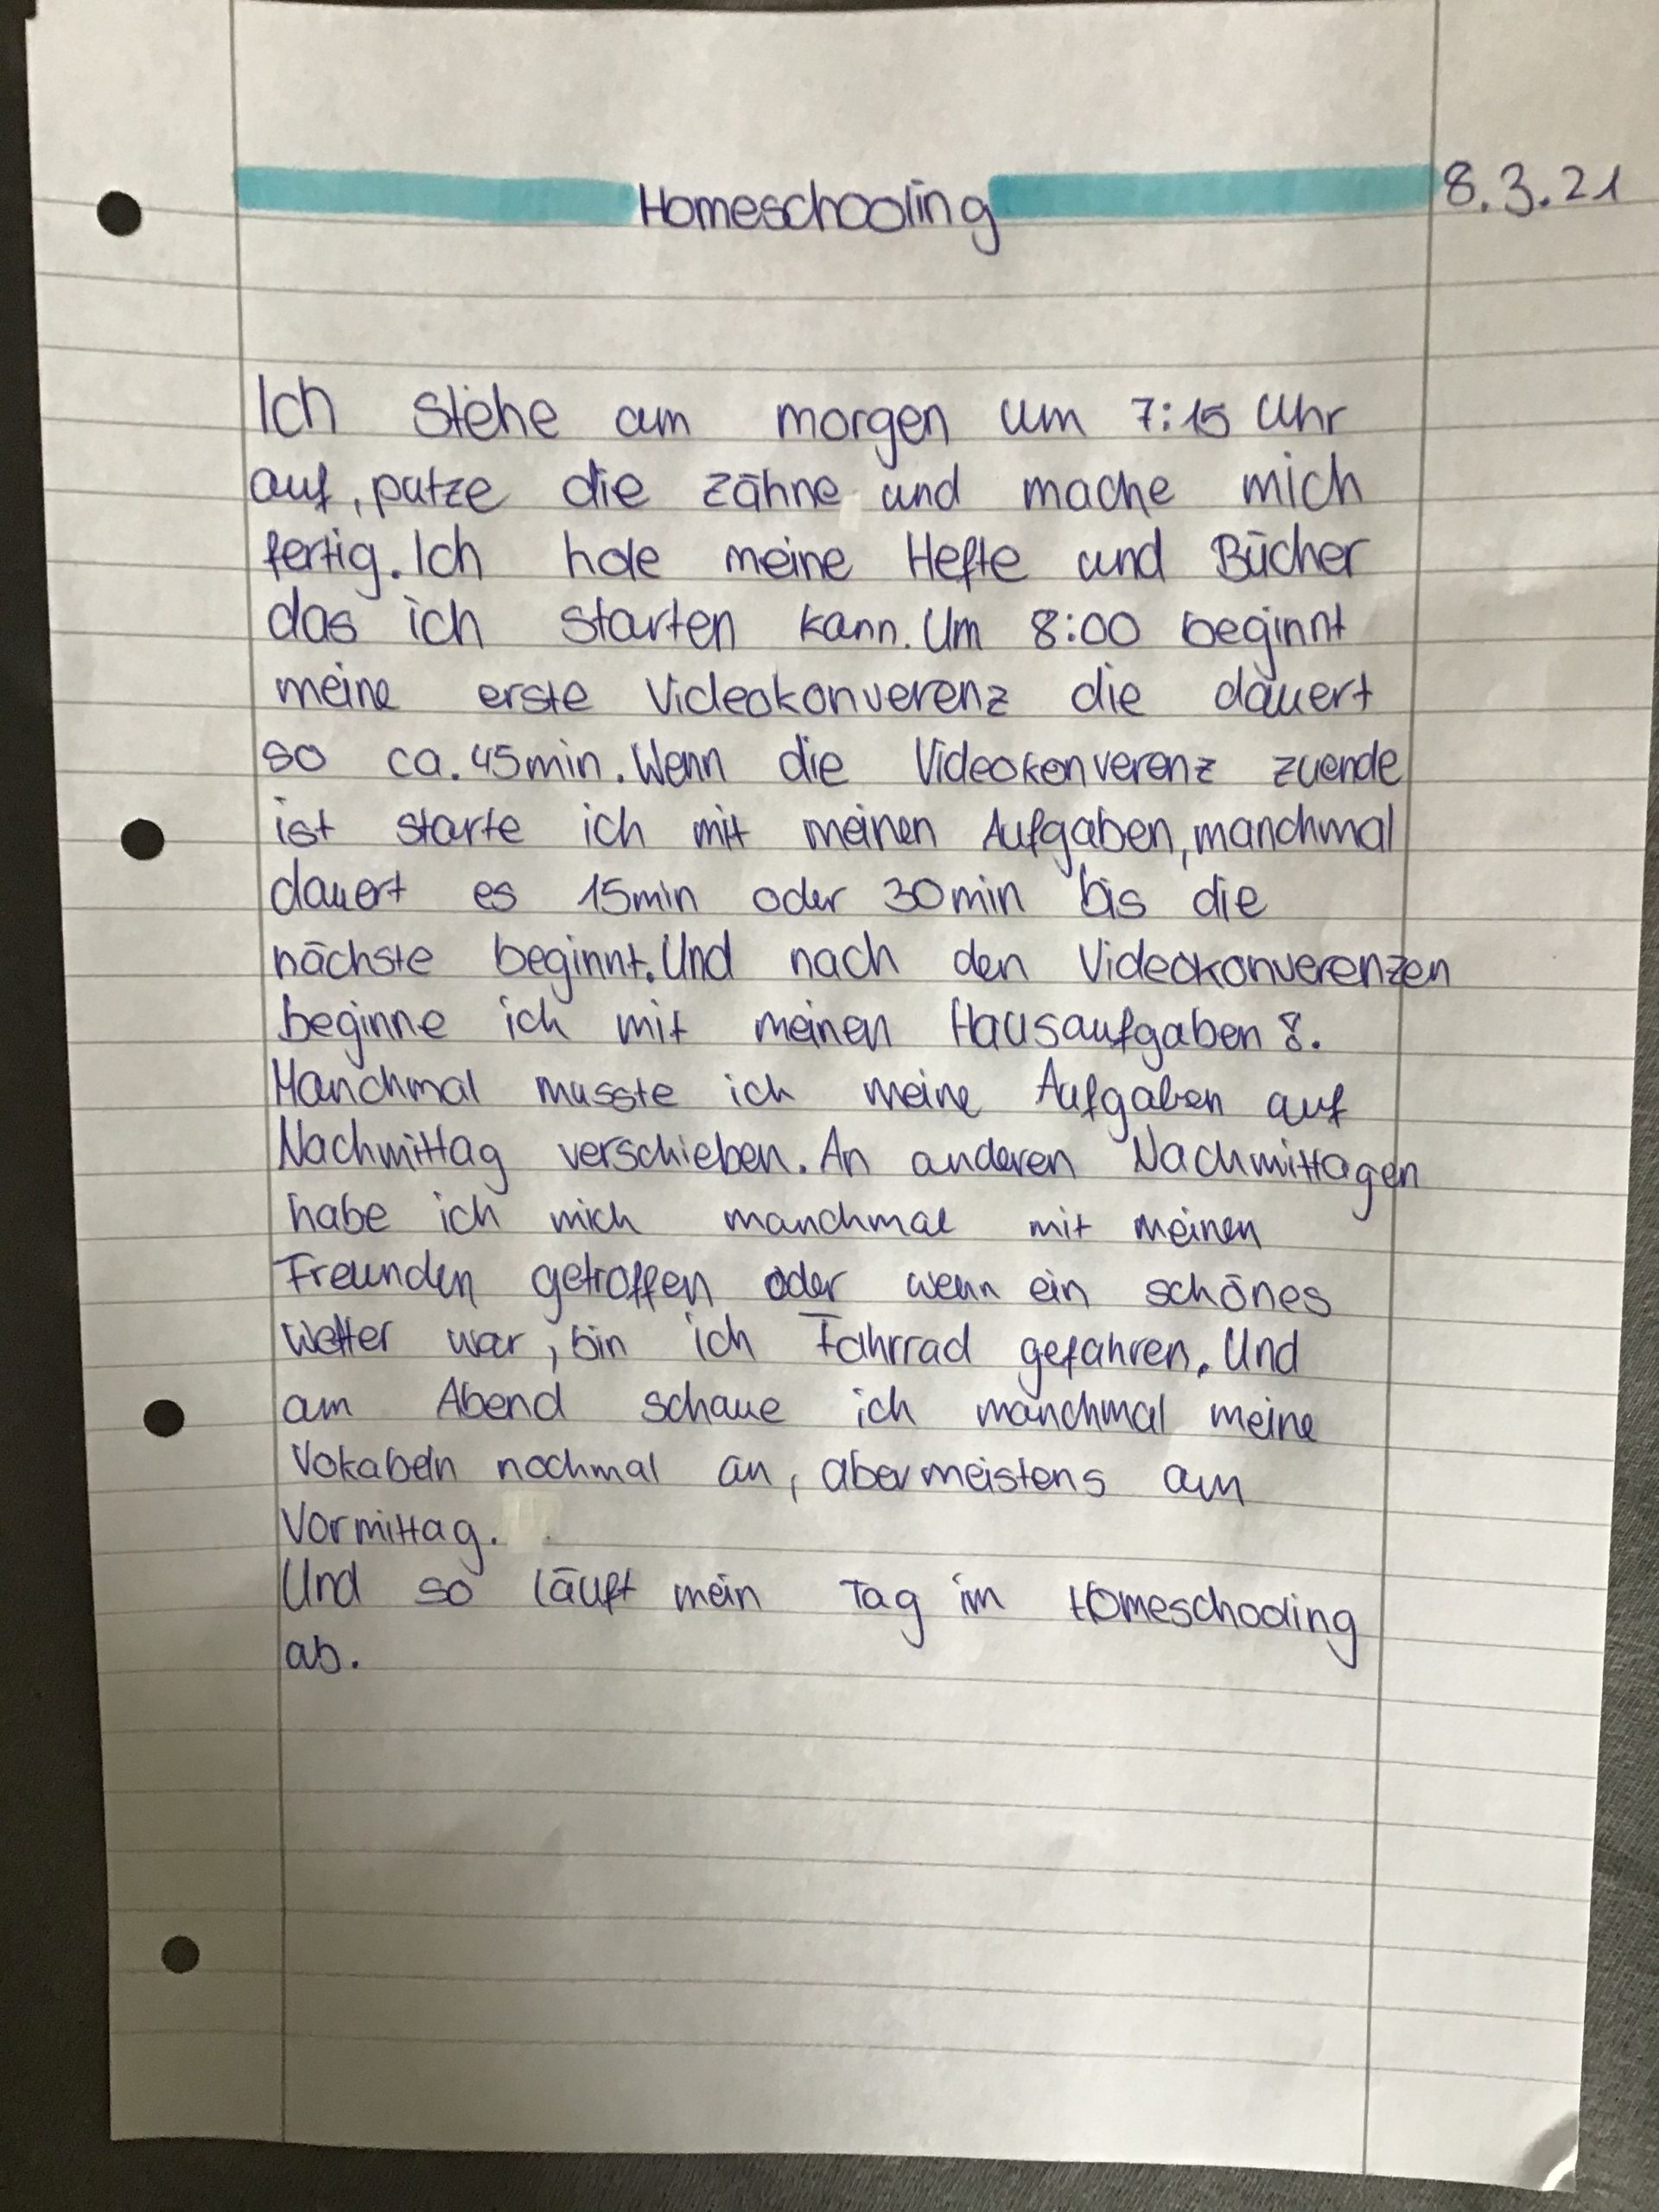 Homeschooling 8.3.21
Ich stehe am morgen um 7:15 Uhr
auf, putze die zähne und mache mich
fertig. Ich hole meine Hefte und Bücher
das ich starten kann. Um 8:00 beginnt
meine erste Videokonverenz die dauert
so ca. 45min. Wenn die Videokonverenz zuende
ist starte ich mit meinen Aufgaben, manchmal
dauert es 15min oder 30min bis die
nächste beginnt. Und nach den Videokonverenzen
beginne ich mit meinen Hausaufgaben 8.
Manchmal musste ich meine Aufgaben auf
Nachmittag verschieben. An anderen Nachmittagen
habe ich mich manchmal mit meinen
Freunden getroffen oder wenn ein schönes
Wetter war, bin ich Fahrrad gefahren. Und
am Abend schaue ich manchmal meine
Vokabeln nochmal an, aber meistens am
Vormittag.
Und so läuft mein Tag im Homeschooling
ab.